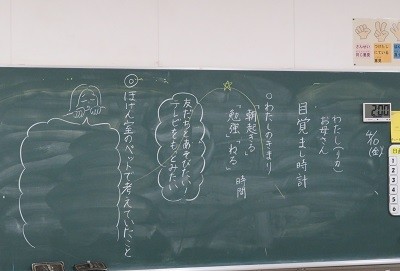 4/10(金)
わたし(リカ)
お母さん
目覚まし時計
○わたしのきまり
「朝起きる」
「勉強」「ねる」時間
友だちとあそびたい!
テレビをもっとみたい
◎ほけん室のベッドで考えていたこと
1
2
3
4
5
6